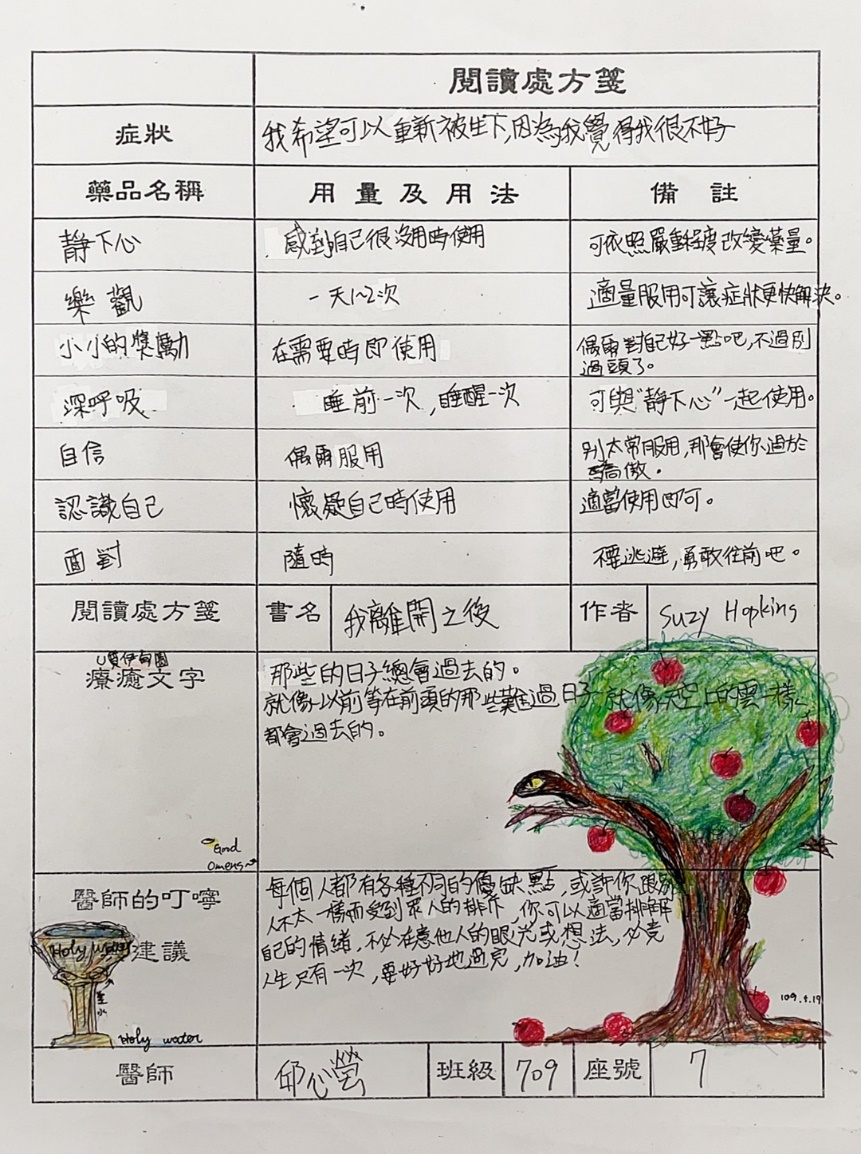 閱讀處方箋
症狀 我希望可以重新被生下,因為我覺得我很不好
藥品名稱 用量及用法 備註
靜下心 感到自己很沒用時使用 可依照嚴重程度改變藥量。
樂觀 一天1~2次 適量服用可讓症狀更快解決。
小小的獎勵 在需要時即使用 偶爾對自己好一點吧,不過別
過頭了。
深呼吸 睡前一次,睡醒一次 可與"靜下心"一起使用。
自信 偶爾服用 別太常服用,那會使你過於
驕傲。
認識自己 懷疑自己時使用 適當使用即可。
面對 隨時 不要逃避,勇敢往前吧。
閱讀處方箋 書名 我離開之後 作者 Suzy Hopking
伊甸園
療癒文字
那些的日子總會過去的。
就像以前等在前頭的那些難過日子就像天空上的雲一樣
都會過去的。
Good
Omens
醫師的叮嚀
建議
每個人都有各種不同的優缺點,或許你跟別
人不太一樣而受到眾人的排斥,你可以適當排解
自己的情緒,不必在意他人的眼光或想法,必竟
人生只有一次,要好好地過完,加油!
Holy water
聖水
Holy water
109.4.19
醫師 邱心瑩 班級 709 座號 7